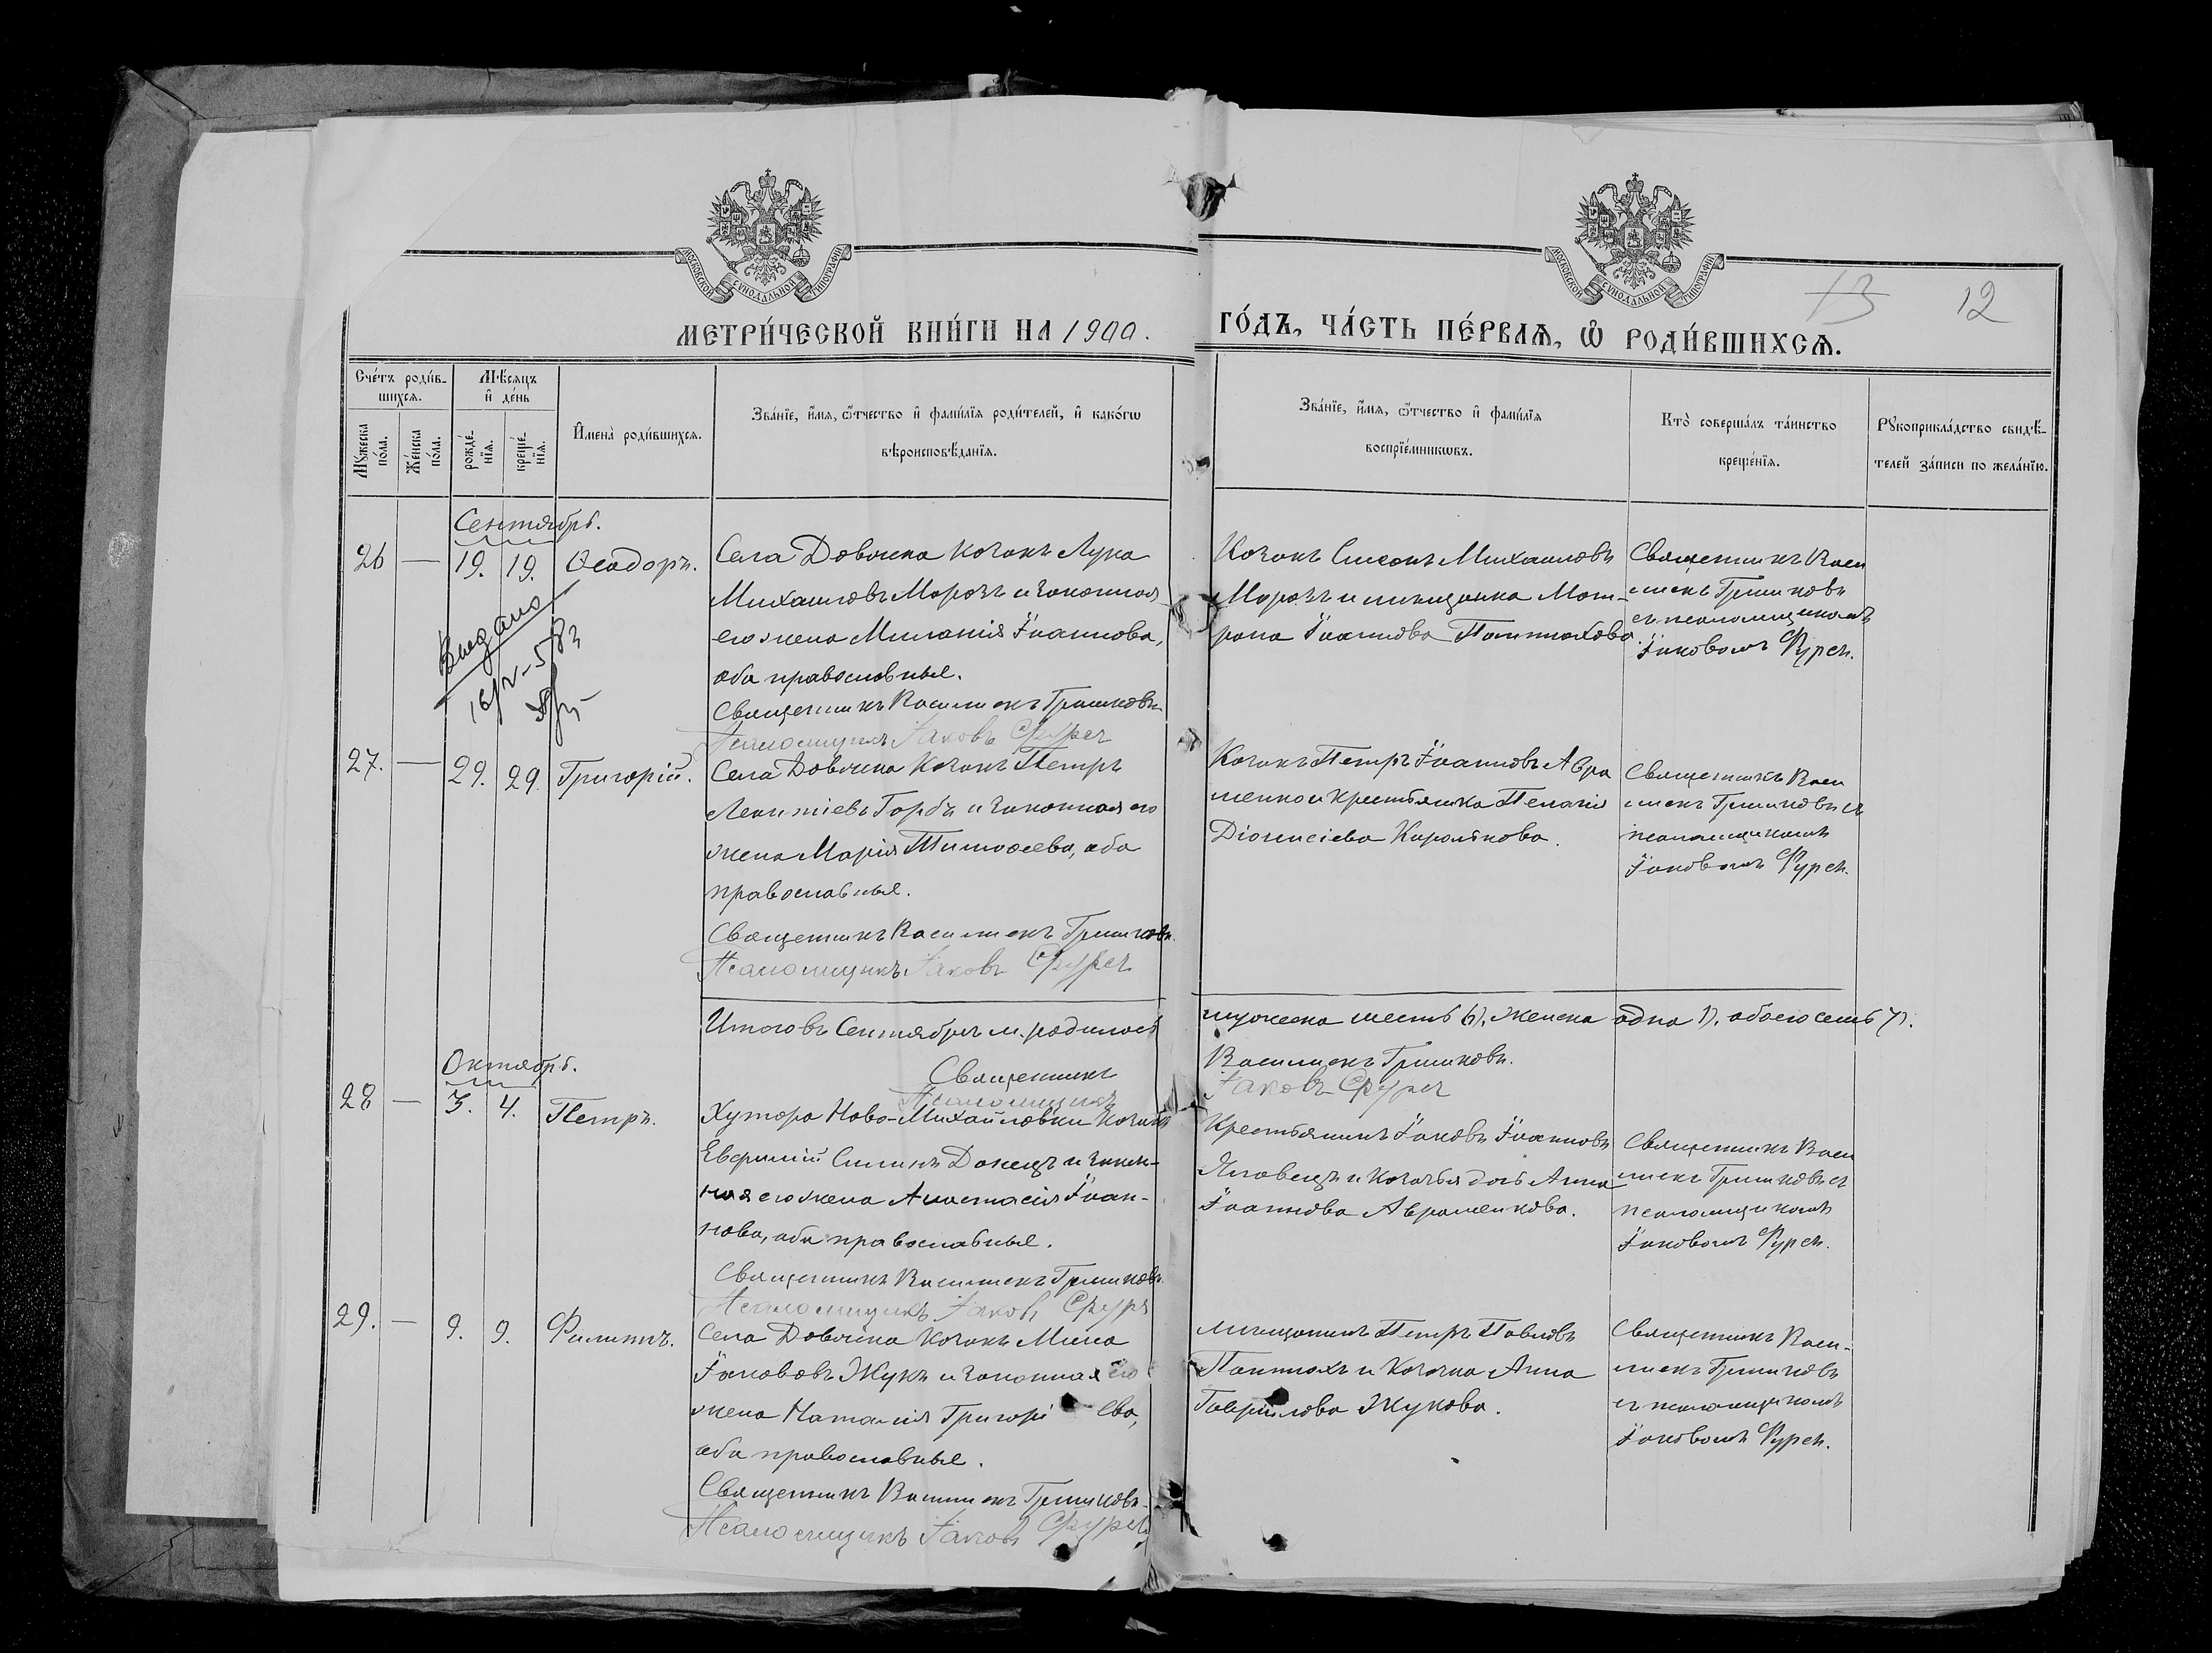 МОСКОВСКОЙ СУНОДАЛЬНОЙ ТИПОГРАФІИ
МОСКОВСКОЙ СУНОДАЛЬНОЙ ТИПОГРАФІИ
13 12
МЕТРИ́ЧЕСКОЙ КНИ́ГИ НА 1900.
ГО́ДЪ, ЧА́СТЬ ПЕ́РВАѦ, Ѡ҆ РОДИ́ВШИХСѦ.
Счетъ роди́в-
шихся.
Мѣсяцъ
и҆ де́нь
Мꙋжеска по́ла.
Же́нска по́ла.
рожде́-
нїя.
креще́-
нїя.
И҆мена̀ роди́вшихся.
Зва́нїе, и҆́мя, ѻ҆́тчество и҆ фами́лїя роди́телей, и҆ како́гѡ
вѣроисповѣ́данїя.
Зва́нїе, и҆́мя, ѻ҆́тчество и҆ фами́лїя
воспрїе́мникѡвъ.
Кто̀ соверша́лъ та́инство
креще́нїя.
Рꙋкоприкла́дство свидѣ́-
телей за́писи по жела́нїю.
Сентябрь.
26 — 19. 19. Ѳеодоръ.
Села Довжика козакъ Лука
Михаиловъ Морозъ и законная
его жена Миланія Іоаннова,
оба православные.
Священникъ Василискъ Гришковъ
Псаломщикъ Іаковъ Фурсъ
Козакъ Симонъ Михаиловъ
Морозъ и мѣщанка Мат-
рона Іоаннова Пантюхова.
Священникъ Васи
лискъ Гришковъ
съ псаломщикомъ
Іаковомъ Фурсъ.
Выдано
27. — 29. 29. Григорій.
Села Довжика козакъ Петръ
Леонтіевъ Горбъ и законная его
жена Марія Тимоѳеева, оба
православные.
Священникъ Василискъ Гришковъ
Псаломщикъ Іаковъ Фурсъ
Козакъ Петръ Іоанновъ Авра
менко и крестьянка Пелагія
Діонисіева Каролькова.
Священникъ Васи
лискъ Гришковъ съ
псаломщикомъ
Іаковомъ Фурсъ.
Итого въ Сентябрѣ м. родилось
мужеска шесть 6), женска одна 1), обоего семь 7).
Священникъ Василискъ Гришковъ.
Псаломщикъ Іаковъ Фурсъ
Октябрь.
28 — 3. 4. Петръ.
Хутора Ново-Михайловки козакъ
Евфимій Донецъ и закон-
ная его жена Анастасія Іоан-
нова, оба православные.
Священникъ Василискъ Гришковъ.
Псаломщикъ Іаковъ Фурсъ
Крестьянинъ Іаковъ Іоанновъ
Яловецъ и козачья дочь Анна
Іоаннова Авраменкова.
Священникъ Васи
лискъ Гришковъ съ
псаломщикомъ
Іаковомъ Фурсъ.
29. — 9. 9. Филиппъ.
Села Довжика козакъ Мина
Іакововъ Жукъ и законная его
жена Наталія Григорі ева,
оба православные.
Священникъ Василискъ Гришковъ.
Псаломщикъ Іаковъ Фурсъ
мѣщанинъ Петръ Павловъ
Пантюхъ и козачка Анна
Гавріилова Жукова.
Священникъ Васи-
лискъ Гришковъ
съ псаломщикомъ
Іаковомъ Фурсъ.